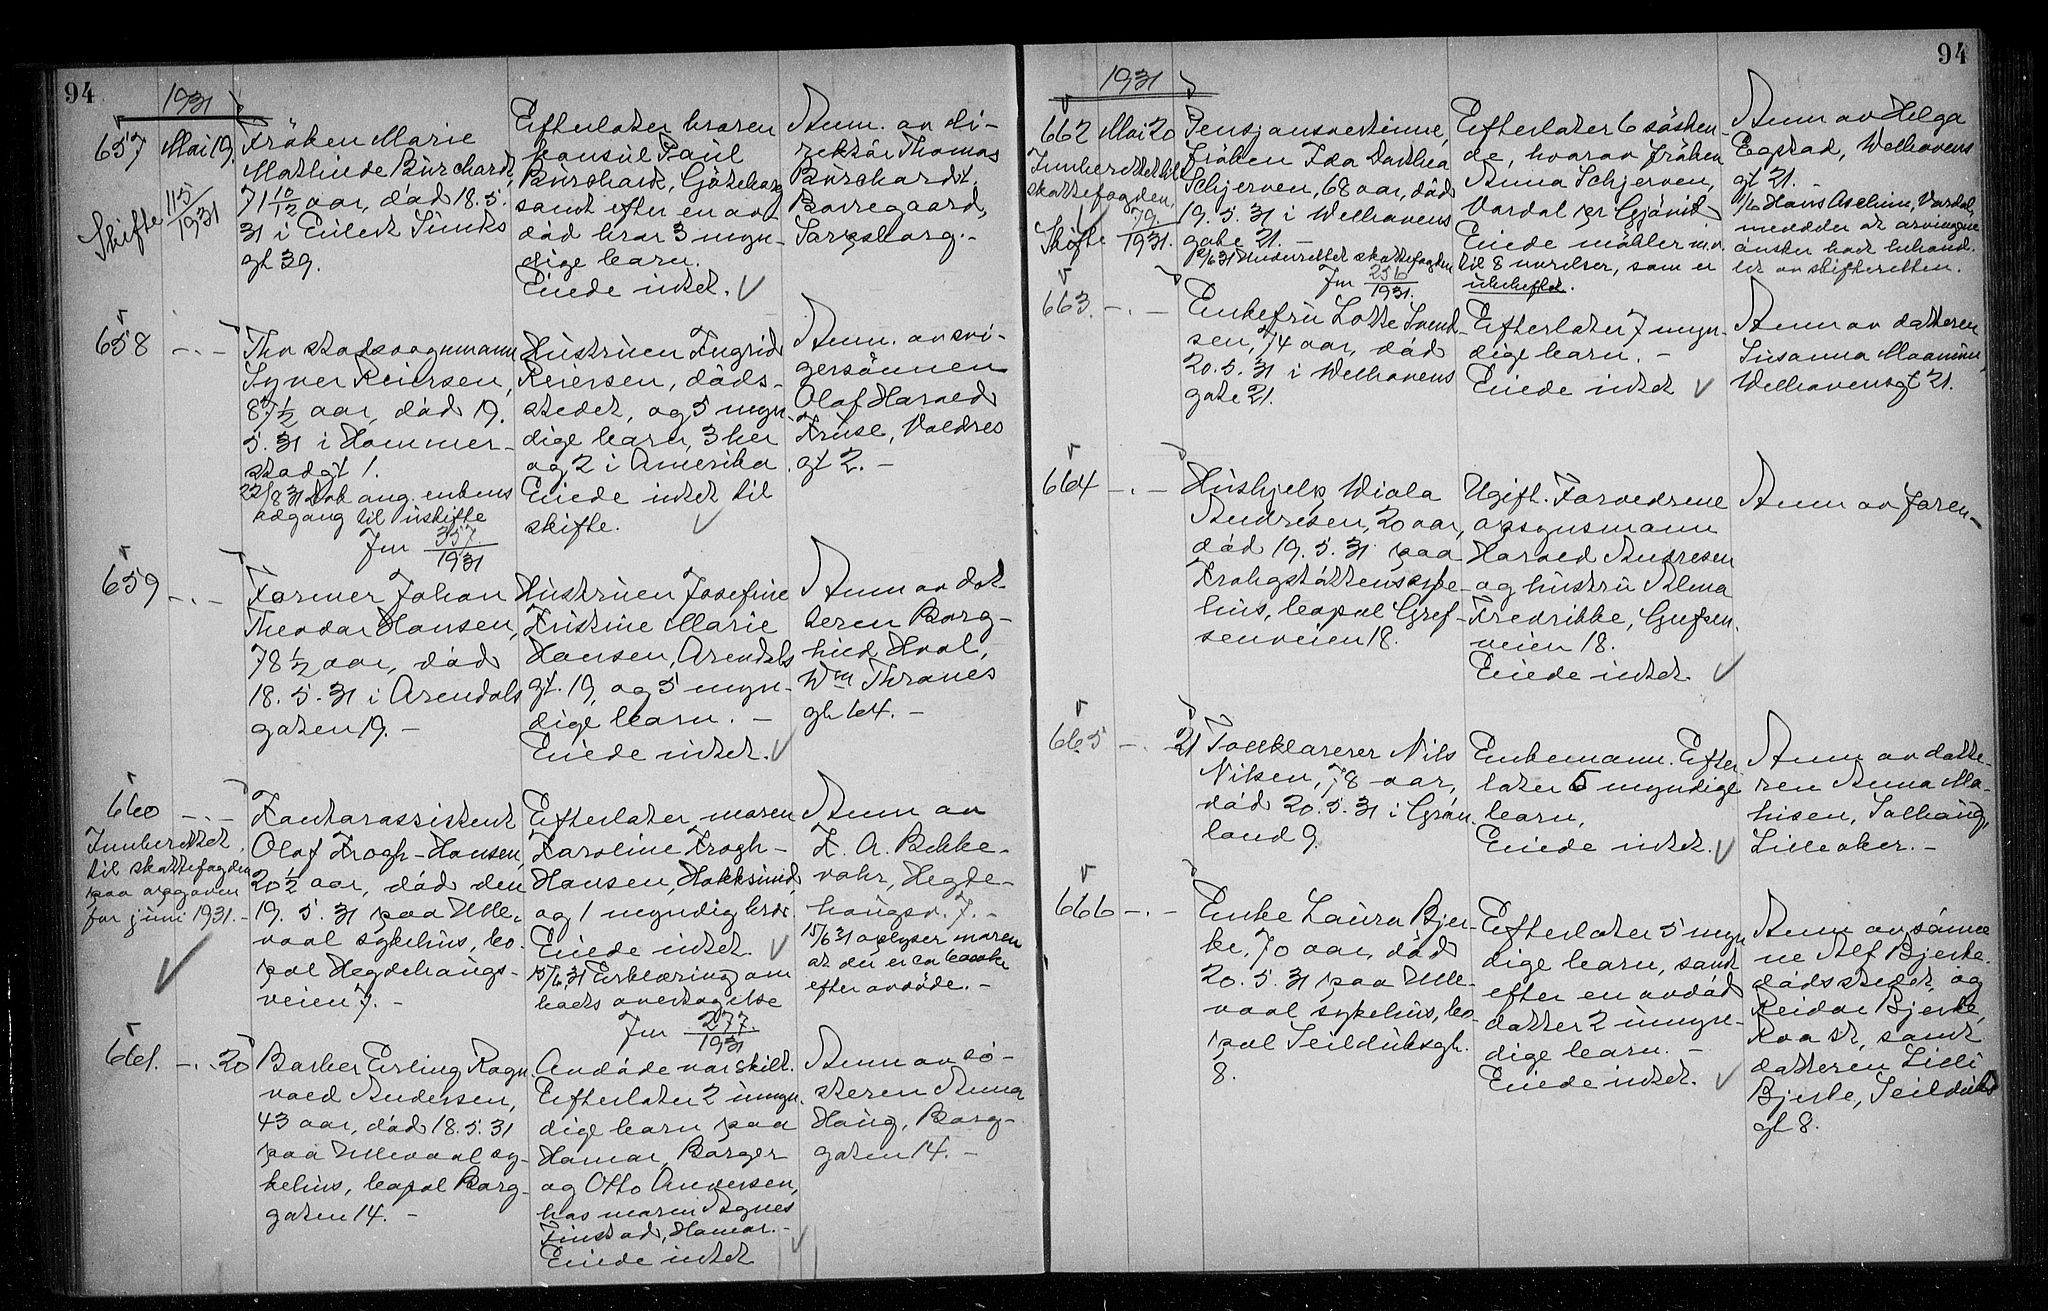 94
1931
657
Mai 19.
Skifte 115/1931
Frøken Marie
Mathilde Burchardt,
71 10/12 aar, død 18.5.
31 i Eilert Sunds
gt 39.
Efterlater broren
konsul Paul
Burchardt, Gøteborg
samt efter en av-
død bror 3 myn-
dige barn.
Eiede intet.
Anm. av di-
rektør Thomas
Burchardt,
Borregaard,
Sarpsborg.-
658 -.-
Fhv stadsvognmann
Syver Reiersen,
87½ aar, død 19.
5.31 i Hammer-
stadgt 1.
22/8 31 Dok ang. enkens
adgang til uskifte
Jnr 357/1931
Hustruen Ingrid
Reiersen, døds-
stedet, og 5 myn-
dige barn, 3 her
og 2 i Amerika
Eiede intet til
skifte.
Anm. av svi-
gersønnen
Olaf Harald
Kruse, Valdres
gt 2.-
659 -.-
Former Johan
Theodor Hansen,
78½ aar, død
18.5.31 i Arendals
gaten 19.-
Hustruen Josefine
Kristine Marie
Hansen, Arendals
gt. 19, og 5 myn-
dige barn. -
Eiede intet.
Anm av dat
teren Borg-
hild Hval,
Wm Thranes
gt 64.-
660 -.-
Innberettet
til skattefogden
paa opgaven
for juni 1931.-
Kontorassistent
Olaf Krogh-Hansen,
20½ aar, død den
19.5.31 paa Ulle-
vaal sykehus, bo-
pæl Hegdehaugs-
veien 7.-
Efterlater moren
Karoline Krogh-
Hansen, Hokksund,
og 1 myndig bror.
Eiede intet.
15/6.31 Erklæring om
boets overtagelse
Jnr 277/1931
Anm av
K. A. Bekke-
vahr, Hegde-
haugsv. 7.-
15/6 31 oplyser moren
at der er ca
efter avdøde.-
661. -.- 20
Barber Erling Ragn
vald Andersen,
43 aar, død 18.5.31
paa Ullevaal sy-
kehus, bopæl Borg-
gaten 14.-
Avdøde var skilt.
Efterlater 2 umyn-
dige barn paa
Hamar, Borger
og Otto Andersen,
hos moren Agnes
Finstad, Hamar.-
Eiede intet
Anm av sø-
steren Anna
Haug, Borg-
gaten 14.-
94
1931
662 Mai 20
Innberettet til
skattefogden
Skifte 79/1931.
Pensjonsvertinne,
frøken Ida Dorthea
Schjerven, 68 aar, død
19.5.31 i Welhavens
gate 21.-
12/6 31 Underrettet skattefogden
Jnr 256/1931.
Efterlater 6 søsken-
de, hvorav frøken
Anna Schjerven,
Vardal pr Gjøvik
Eiede møbler m.v.
til 8 værelser, som er
ubeheftet.
Anm av Helga
Egstad, Welhavens
gt 21.-
1/6 Hans Aschim, Vardal,
medder at arvingene
ønsker boet behand-
let av skifteretten.
663. -.-
Enkefru Lotte Svend-
sen, 74 aar, død
20.5.31 i Welhavens
gate 21.
Efterlater 7 myn-
dige barn.-
Eiede intet
Anm av datteren
Susanna Moaninn,
Welhavensgt 21.
664 -.-
Hushjelp Viola
Andresen, 20 aar,
død 19.5.31 paa
Krohgstøttens syke-
hus, bopæl Gref-
senveien 18.
Ugift. Forældrene
opsynsmann
Harald Andresen
og hustru Alma
Fredrikke, Grefsen-
veien 18.
Eiede intet.
Anm av faren-
665 -.- 21
Tollklarerer Nils
Nilsen, 78 aar,
død 20.5.31 i Grøn
land 9.
Enkemann. Efter
later 5 myndige
barn,
Eiede intet.
Anm av datte-
ren Anna Ma-
hisen, Solhaug,
Lilleaker.-
666 -.-
Enke Laura Bjer-
ke, 70 aar, død
20.5.31 paa Ulle-
vaal sykehus, bo-
pæl Seilduksgt.
8.
Efterlater 5 myn
dige barn, samt
efter en avdød
datter 2 umyn-
dige barn.-
Eiede intet.
Anm av sønne
ne Alf Bjerke,
dødsstedet, og
Reidar Bjerke,
Roa st, samt
datteren Lilli
Bjerke, Seilduks
gt 8.